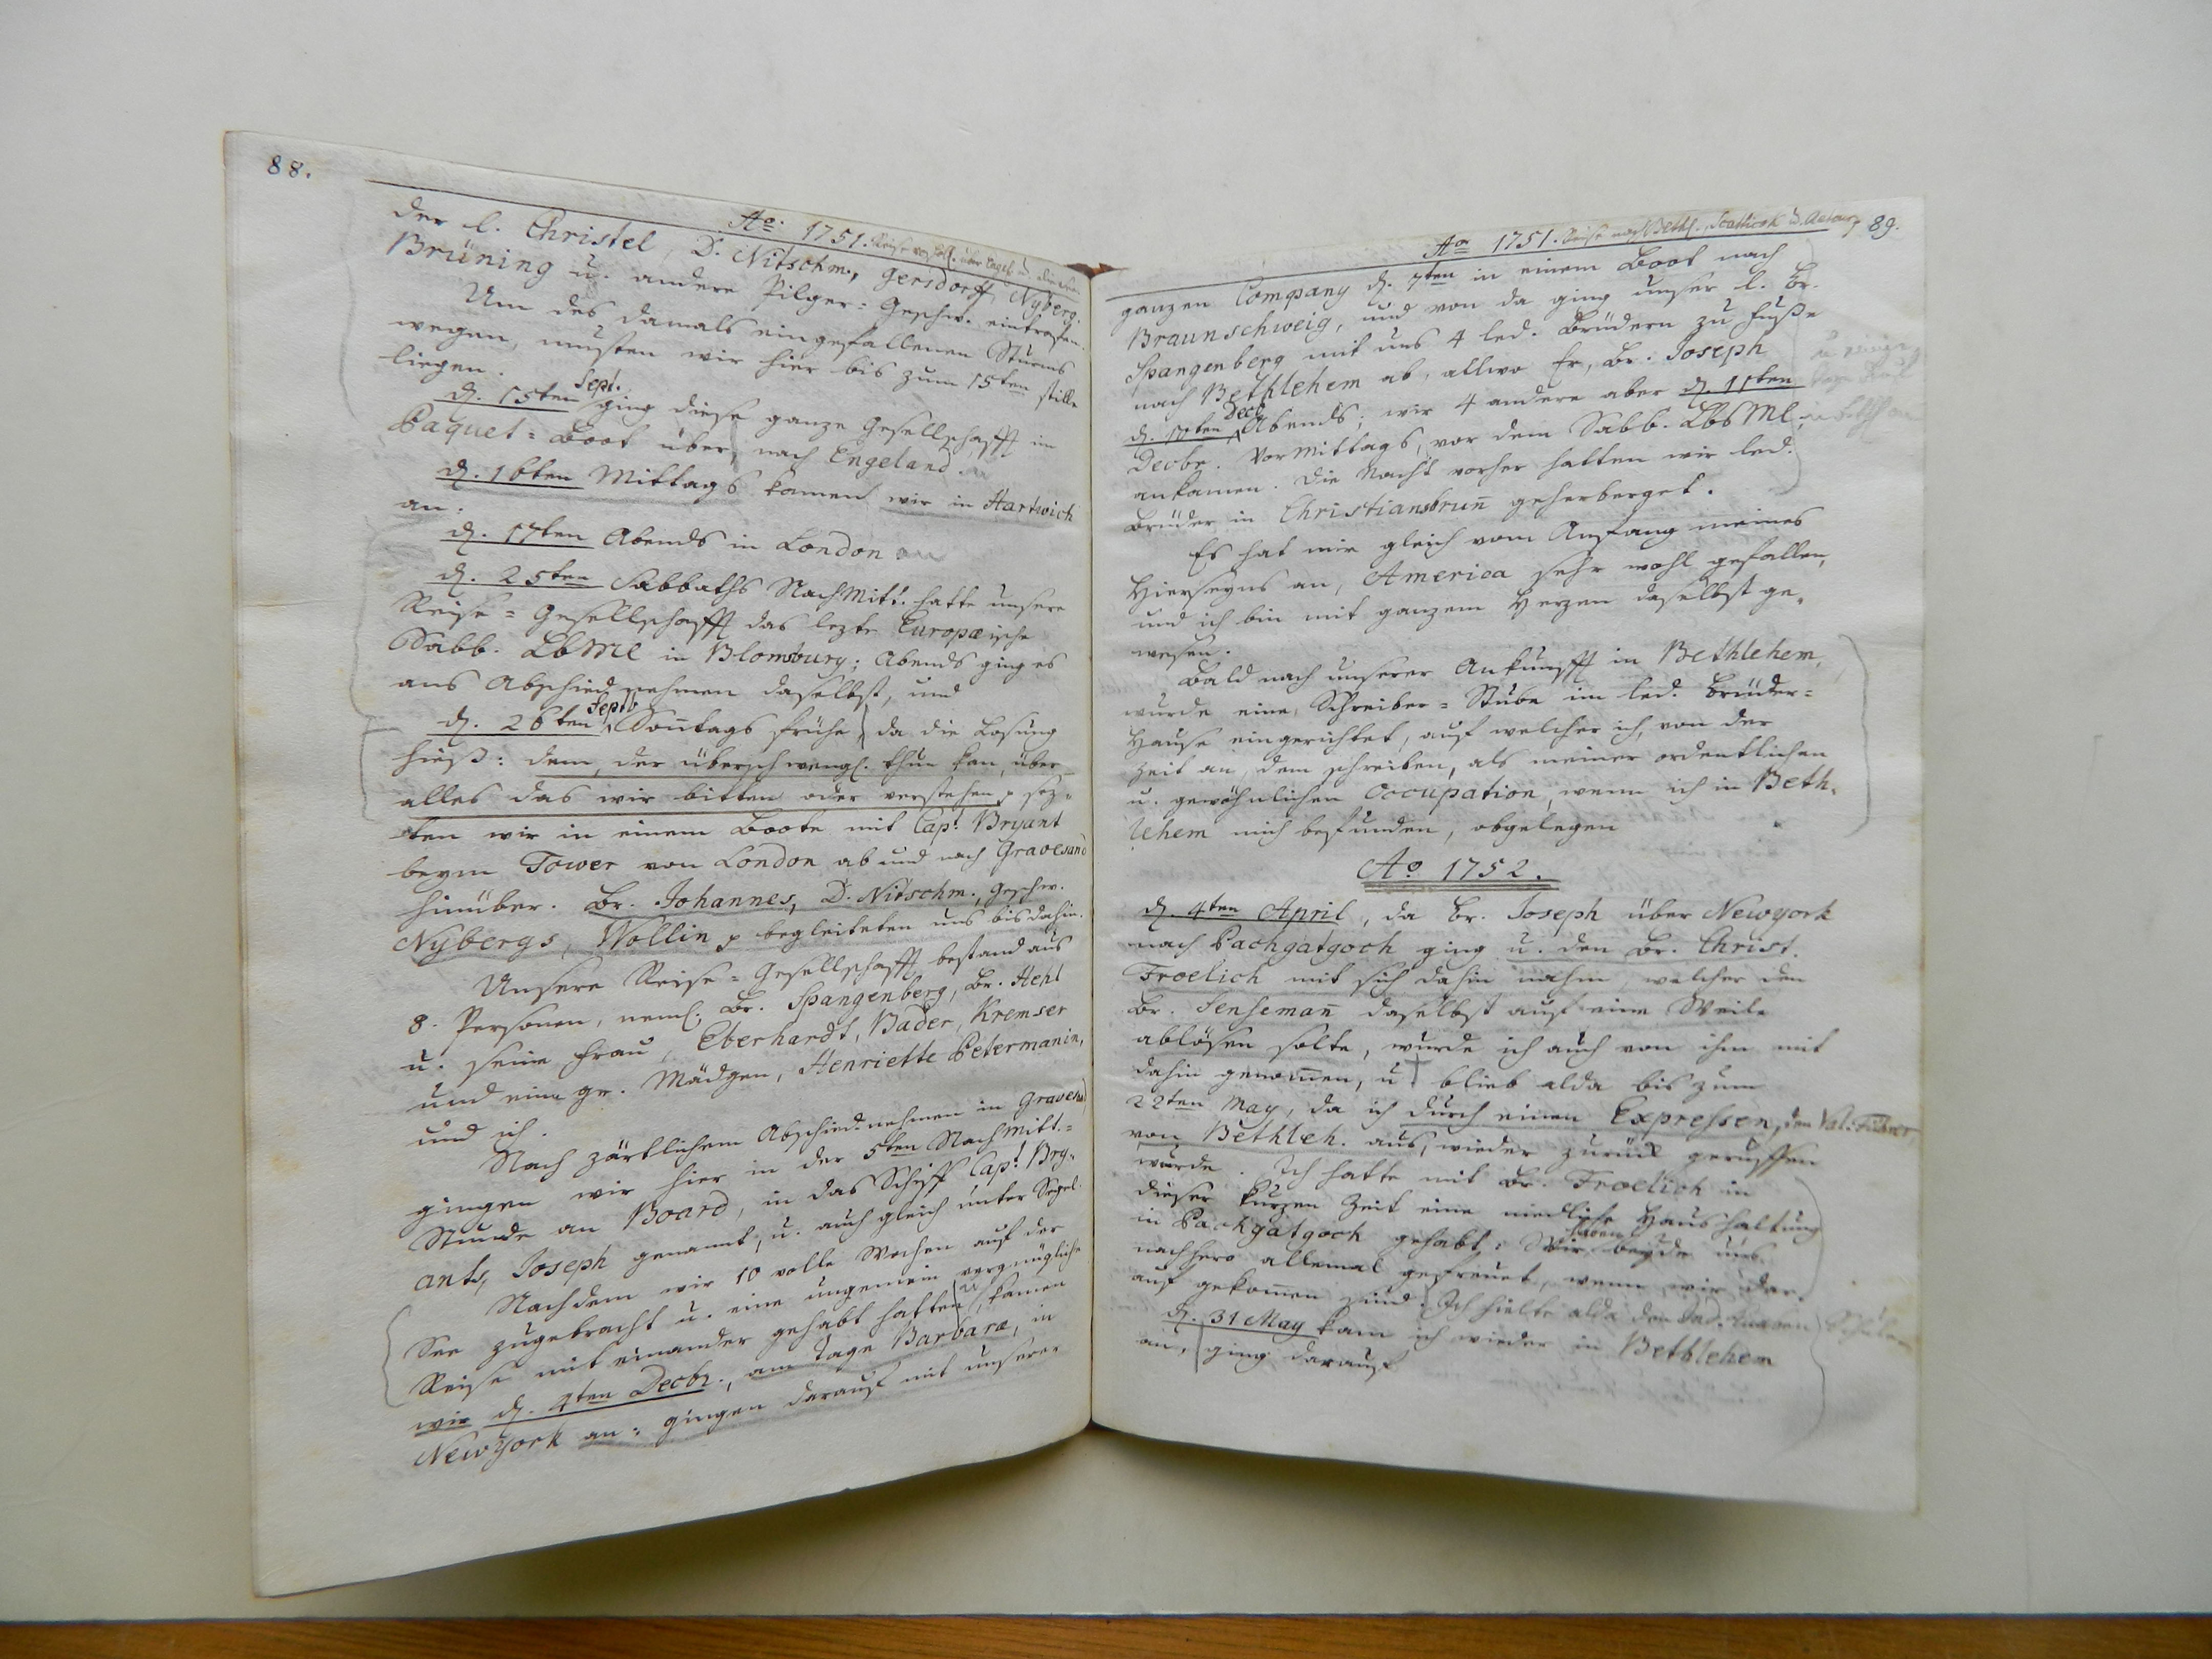 88.
Ao: 1751. Reise
der l. Christel, D. Nitschm., Gersdorff, Nyberg.
Brüning u. andere Pilger-Geschw. eintrafen.
Um des damals eingefallenen Sturms
wegen, musten wir hier bis zum 15ten stille
liegen.
d. 15ten Sept. ging diese ganze Gesellschafft im
Paquet-Boot über, nach Engeland.
d. 16ten Mittags kamen wir in Hartwich
an:
d. 17ten Abends in London
d. 25ten Sabbaths NachMitt. hatte unsere
Reise-Gesellschafft das lezte Europæische
Sabb. LbMl in Blomsbury; Abends ging es
ans Abschied nehmen daselbst, und
d. 26ten Septb. Soñtags frühe, da die Losung
hieß: dem, der überschwengl. thun kan, über
alles das wir bitten oder verstehen p sez-
ten wir in einem Boote mit Capt. Bryant
beym Tower von London ab und nach Gravesand
hinüber. Br. Johannes, D. Nitschm., Geschw.
Nybergs, Wollin p begleiteten uns bis dahin.
Unsere Reise-Gesellschafft bestand aus
8. Personen, neml. Br. Spangenberg, Br. Hehl
u. seine Frau, Eberhardt, Bader, Kremser
und eine gr. Mädgen, Henriette Petermanin,
und ich.
Nach zärtlichem Abschiednehmen in Gravesand
gingen wir hier in der 5ten NachMitt.-
Stunde an Board, in das Schiff Capt. Bry-
ants, Joseph genannt, u. auch gleich unter Segel.
Nachdem wir 10 volle Wochen auf der
See zugebracht u. eine ungemein vergnügliche
Reise mit einander gehabt hatten, kamen
wir d. 4ten Decbr., am Tage Barbaræ, in
Newyork an: gingen darauf mit unserer
Ao 1751. Reise nach Bethl. 89.
ganzen Company d. 7ten in einem Boot nach
Braunschweig, und von da ging unser l. Br.
Spangenberg mit uns 4 led. Brüdern zu Fuße
nach Bethlehem ab, allwo Er, Br. Joseph
d. 10ten Decbr Abends; wir 4 andere aber d. 11ten
Decbr. Vormittags, vor dem Sabb. LbsMl,
ankamen. Die Nacht vorher hatten wir led.
Brüder in Christiansbruñ geherberget.
Es hat mir gleich vom Anfang meines
Hierseyns an, America sehr wohl gefallen,
und ich bin mit ganzem Herzen daselbst ge-
wesen.
Bald nach unserer Ankunfft in Bethlehem,
wurde eine Schreiber-Stube im led. Brüder-
Hause eingerichtet, auf welcher ich, von der
Zeit an, dem schreiben, als meiner ordentlichen
u. gewöhnlichen Occupation, wenn ich in Beth-
lehem mich befunden, obgelegen
Ao 1752.
d. 4ten April, da Br. Joseph über Newyork
nach Pachgatgoch ging u. den Br. Christ.
Froelich mit sich dahin nahm, welcher den
Br. Sensemañ daselbst auf eine Weile
ablösen solte, wurde ich auch von ihm mit
dahin genom̃en, u blieb alda bis zum
22ten May, da ich durch einen Expressen, den Val: Führer,
von Bethleh. aus, wieder zurück geruffen
wurde. Ich hatte mit Br. Froelich in
dieser kurzen Zeit eine niedliche Haushaltung
in Pachgatgoch gehabt: Wir haben beyde uns
nachhero allemal gefreuet, wenn wir dar-
auf gekom̃en sind. Ich hielte alda den Ind. Knaben Schule
d. 31 May kam ich wieder in Bethlehem
an, ging darauf